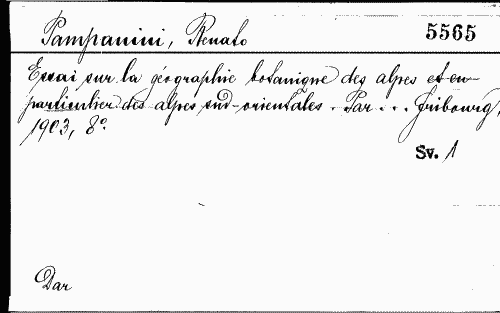 Pampanini, Renato 5565
Essai sur la géographie botanique des alpes et en
particulier des alpes sud-orientales. Par ... Fribourg,
1903, 8°.
Sv. 1
Dar